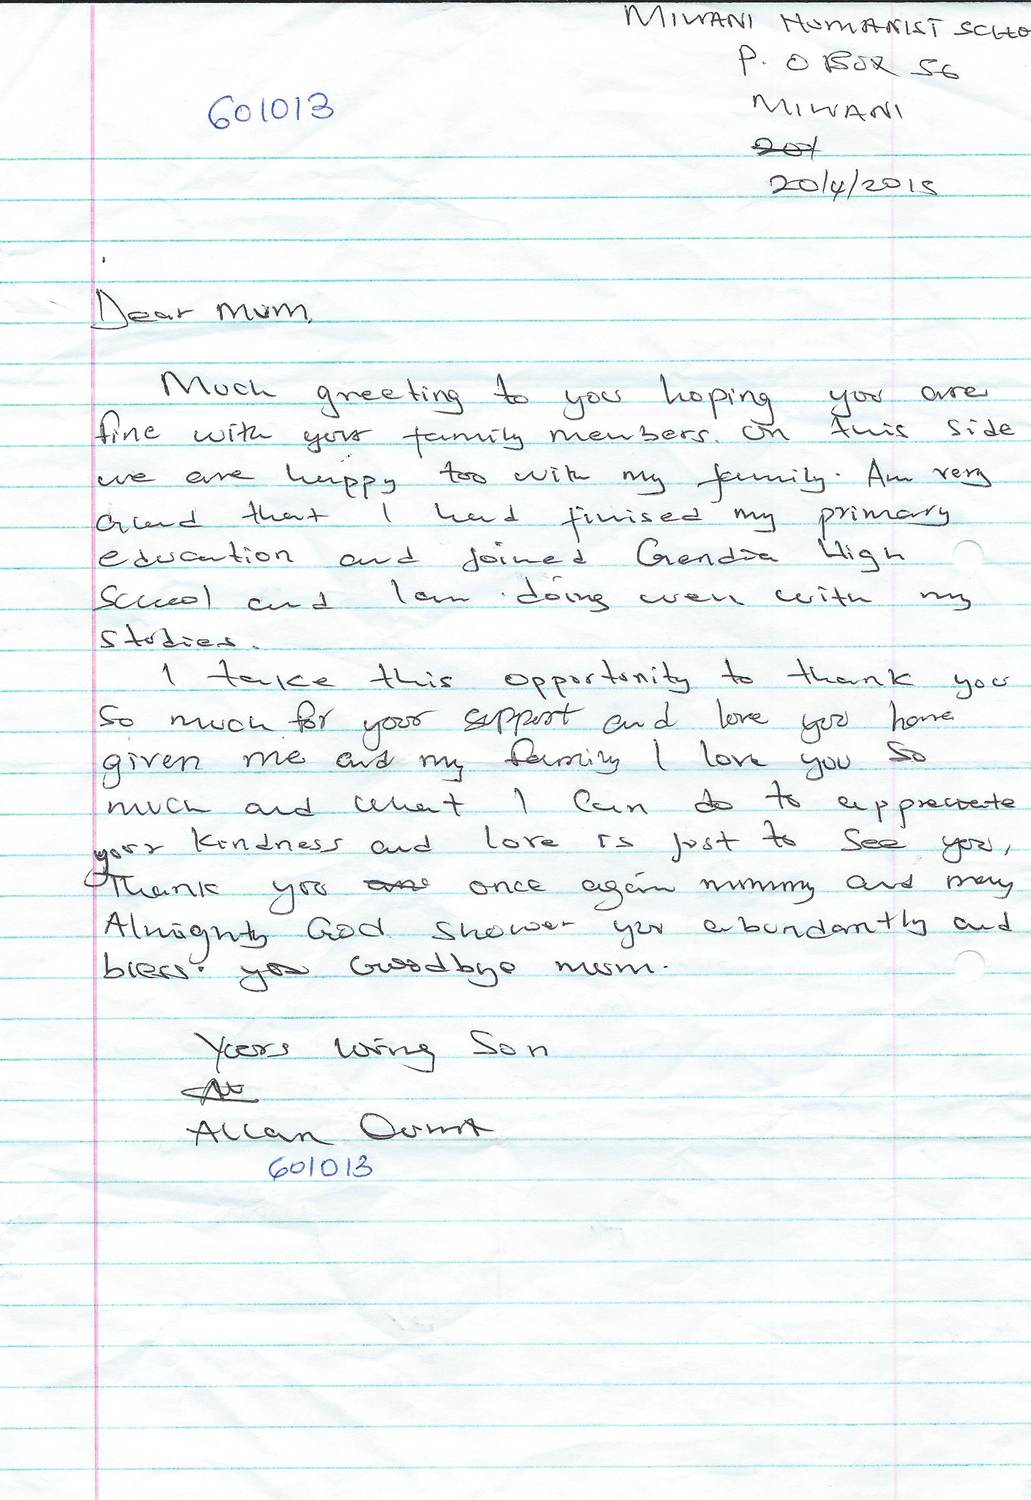 MIWANI HUMANIST SCHO
P. O BOX 56
601013
MIWANI
201
20/4/2015
Dear Mum,
Much greeting to you hoping you are
fine with your family members. On this side
we are happy too with my family. Am very
glad that I had finised my primary
education and joined Gendia High
School and I am doing well with my
studies.
I take this opportunity to thank you
So much for your support and love you have
given me and my family I love you so
much and what I can do to appreciate
your kindness and love is just to See you,
Thank you once again mummy and may
Almighty God shower you abundantly and
bless. you Goodbye mum.
Yours loving Son
Allan
601013